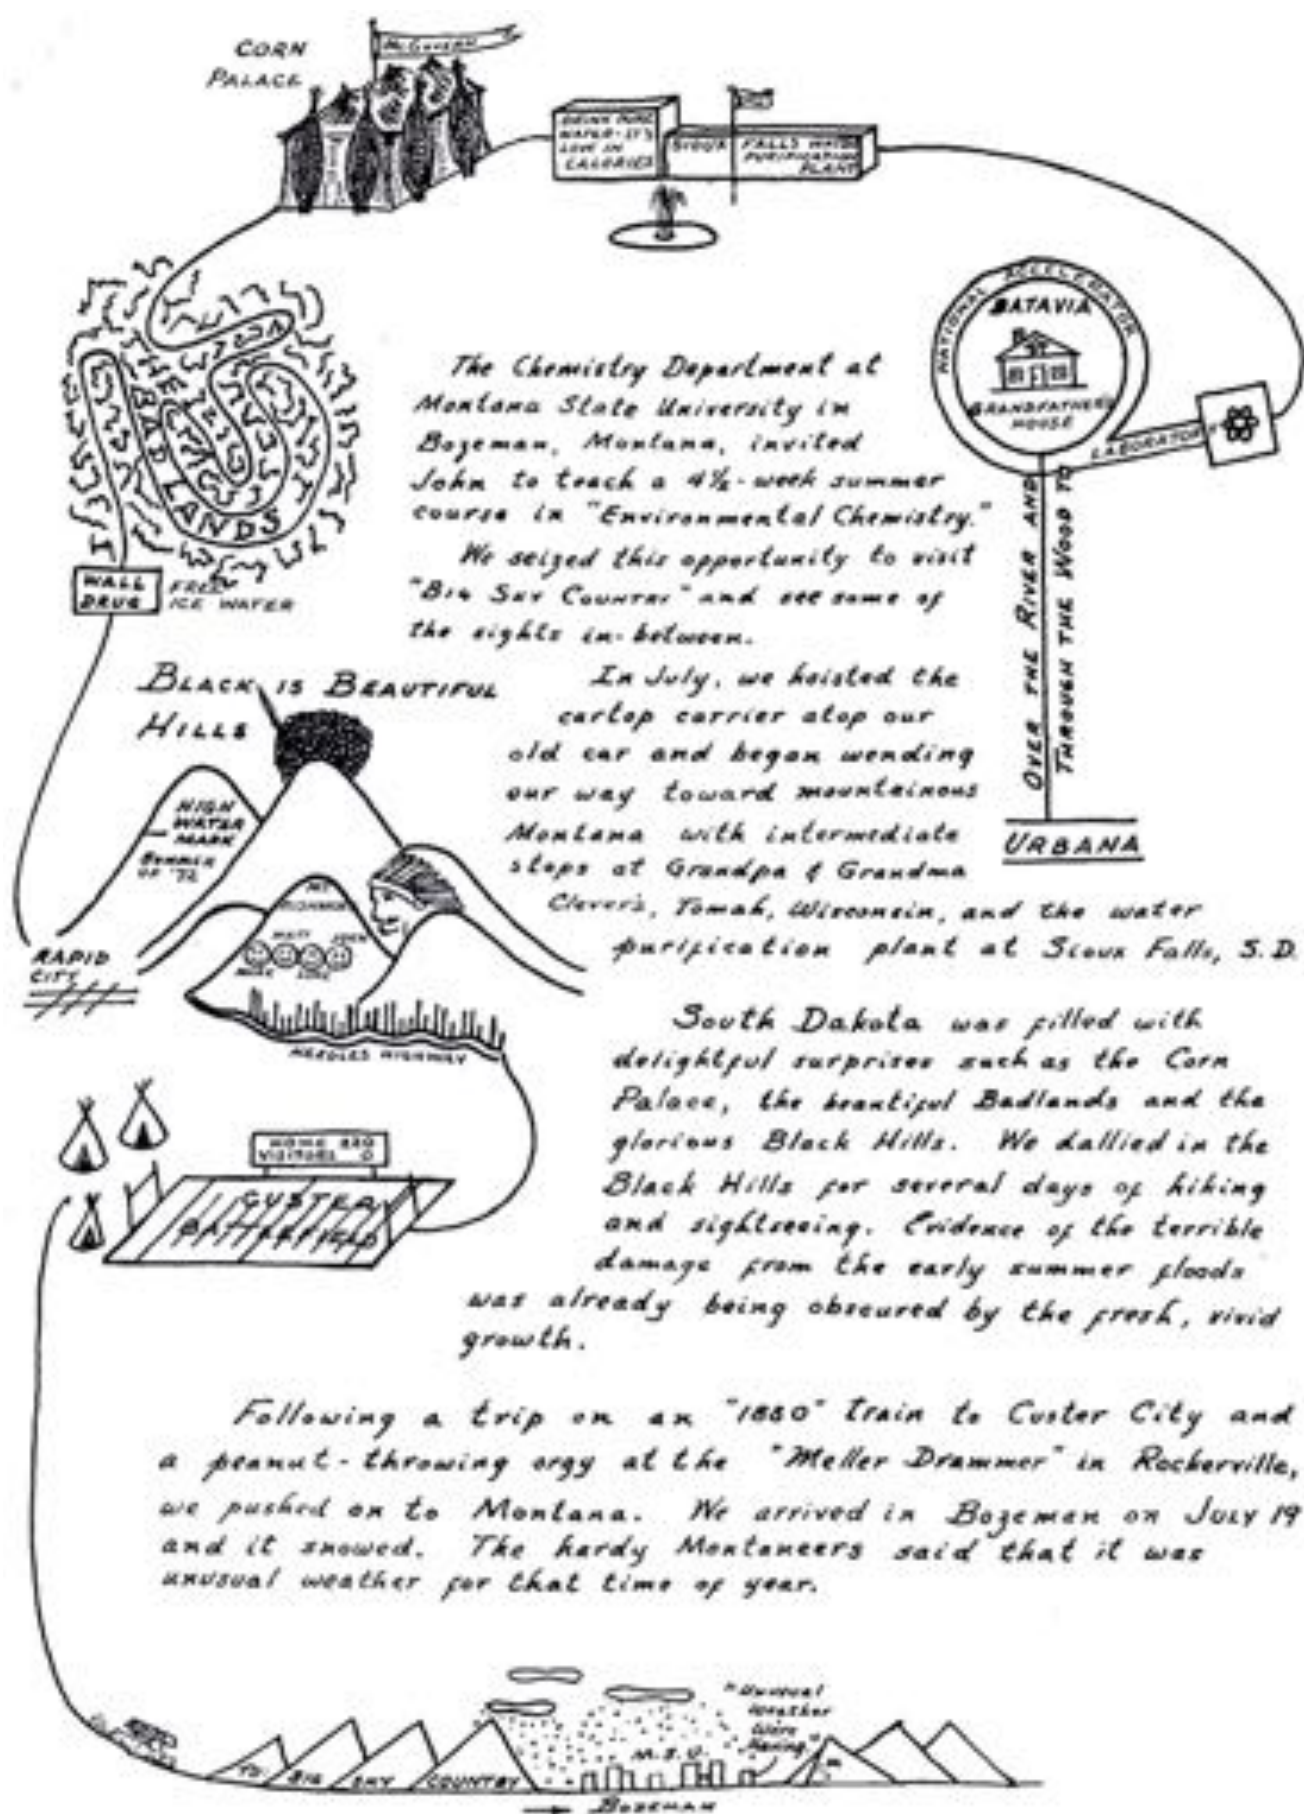 CORN
PALACE
McGOVERN
DRINK PURE
WATER-IT'S
LOW IN
CALORIES
SIOUX FALLS WATER
PURIFICATION
PLANT
NATIONAL ACCELERATOR
LABORATORY
BATAVIA
GRANDFATHER'S
HOUSE
OVER THE RIVER AND
THROUGH THE WOOD TO
URBANA
THE
BAD LANDS
WALL
DRUG
FREE
ICE WATER
The Chemistry Department at
Montana State University in
Bozeman, Montana, invited
John to teach a 4½-week summer
course in "Environmental Chemistry."
We seized this opportunity to visit
"BIG SKY COUNTRY" and see some of
the sights in-between.
In July, we hoisted the
cartop carrier atop our
old car and began wending
our way toward mountainous
Montana with intermediate
stops at Grandpa & Grandma
Clever's, Tomah, Wisconsin, and the water
purification plant at Sioux Falls, S.D.
BLACK IS BEAUTIFUL
HILLS
HIGH
WATER
MARK
SUMMER
OF '72
MT
RUSHMORE
MATT
MARK
RAPID
CITY
NEEDLES HIGHWAY
South Dakota was filled with
delightful surprises such as the Corn
Palace, the beautiful Badlands and the
glorious Black Hills. We dallied in the
Black Hills for several days of hiking
and sightseeing. Evidence of the terrible
damage from the early summer floods
was already being obscured by the fresh, vivid
growth.
HOME
VISITORS 0
CUSTER
BATTLEFIELD
Following a trip on an "1880" train to Custer City and
a peanut-throwing orgy at the "Meller Drammer" in Rockerville,
we pushed on to Montana. We arrived in Bozeman on JULY 19
and it snowed. The hardy Montaneers said that it was
unusual weather for that time of year.
"Unusual
Weather
We're
Having"
M.S.U.
BIG SKY COUNTRY
M
BOZEMAN